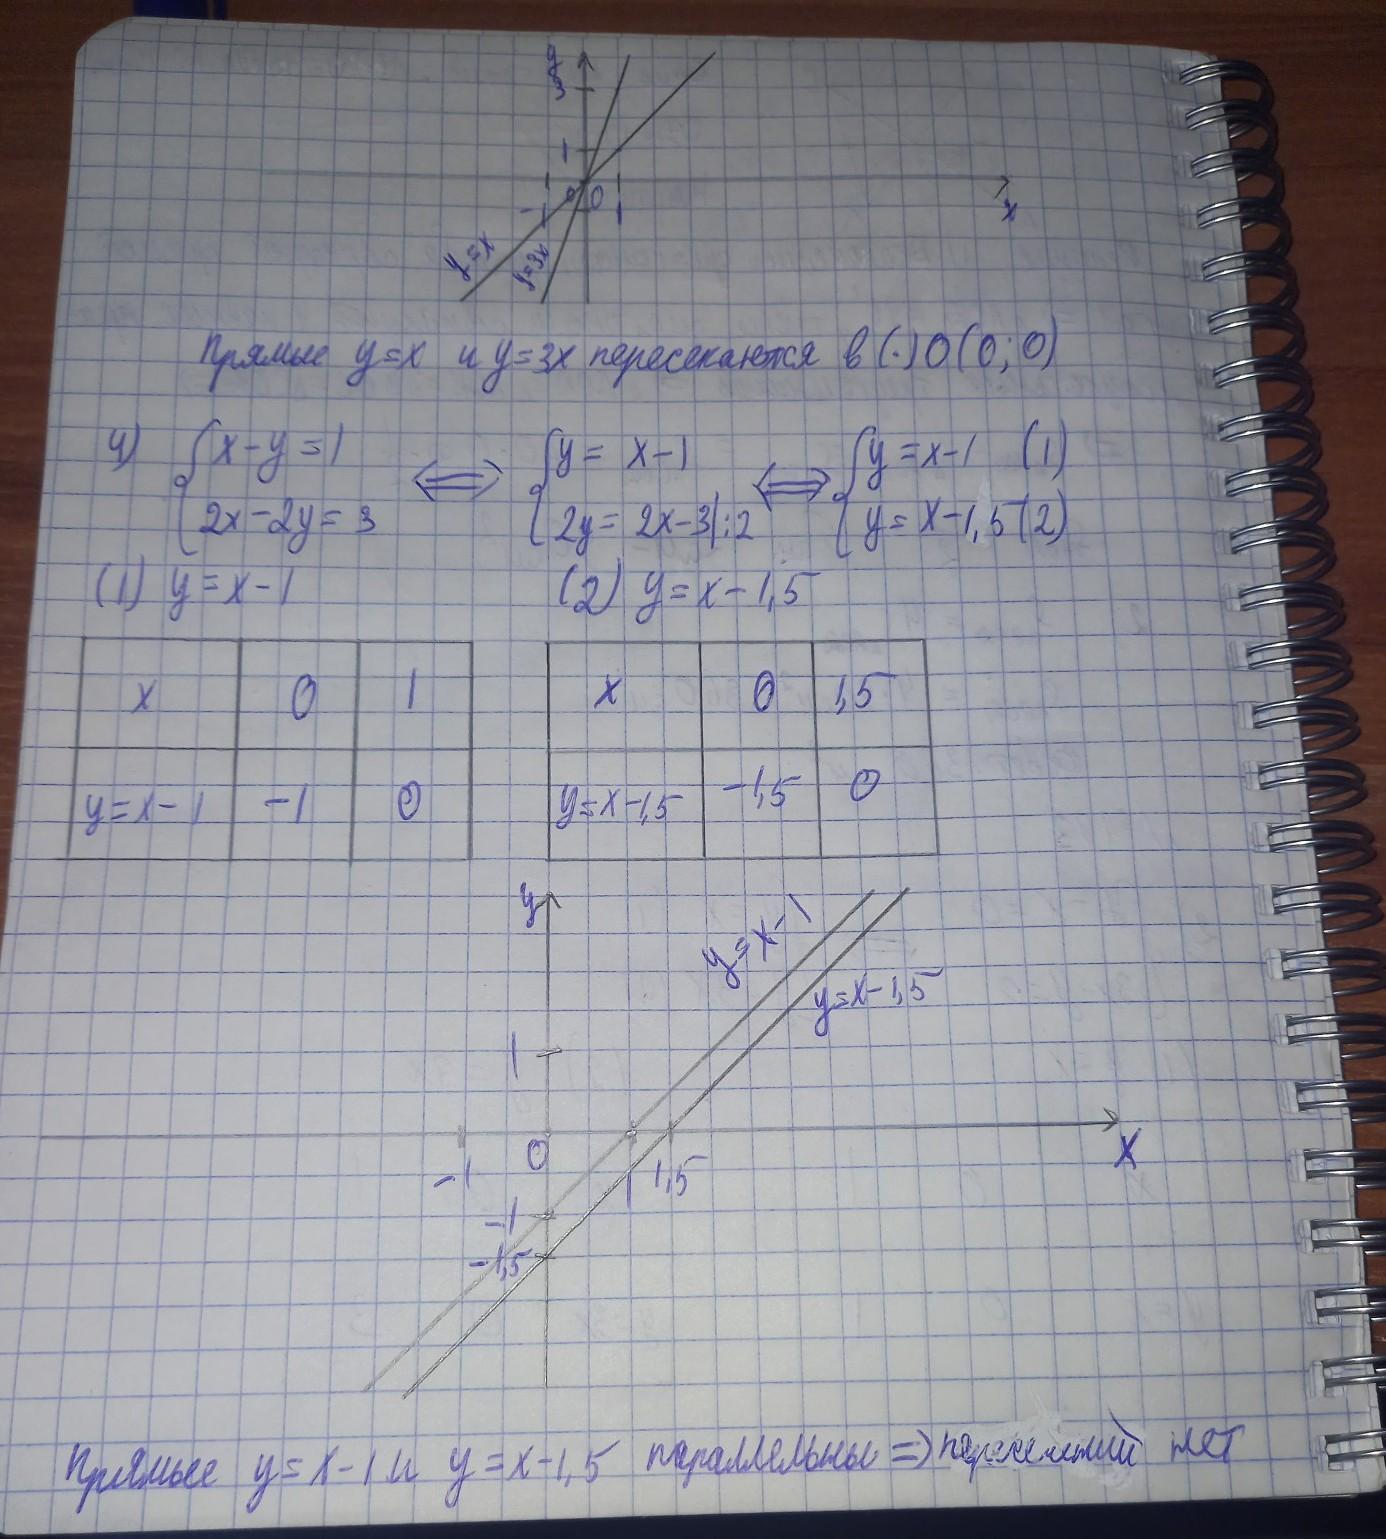 y
3
1
0
x
-1
1
y=x
y=3x
Прямые y=x и y=3x пересекаются в (·) O (0; 0)
4) { x-y=1 <=> { y= x-1 <=> { y=x-1 (1)
2x-2y=3 2y= 2x-3|:2 y=x-1,5 (2)
(1) y=x-1 (2) y=x-1,5
x 0 1 x 0 1,5
y=x-1 -1 0 y=x-1,5 -1,5 0
y
y=x-1
y=x-1,5
1
0
x
-1
1
1,5
-1
-1,5
Прямые y=x-1 и y=x-1,5 параллельны => пересечений нет